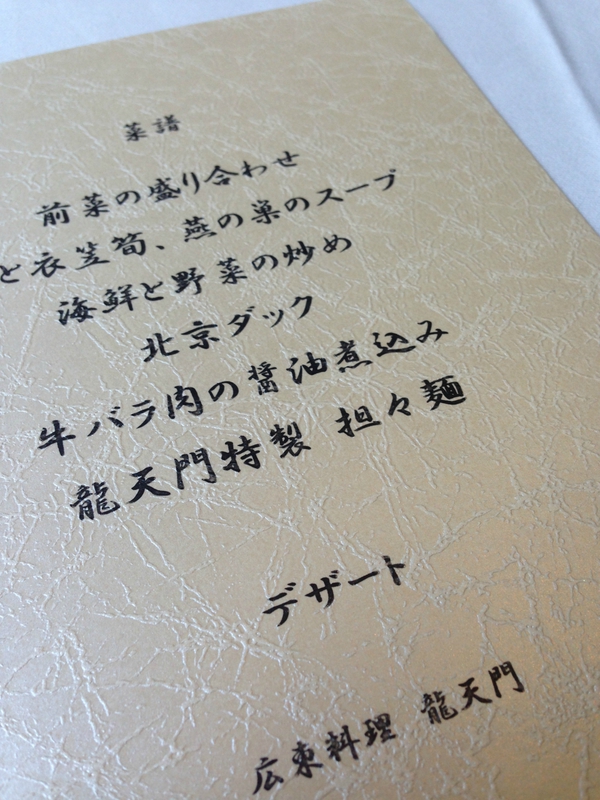 菜譜
前菜の盛り合わせ
と衣笠筍、燕の巣のスープ
海鮮と野菜の炒め
北京ダック
牛バラ肉の醤油煮込み
龍天門特製 担々麺
デザート
広東料理 龍天門